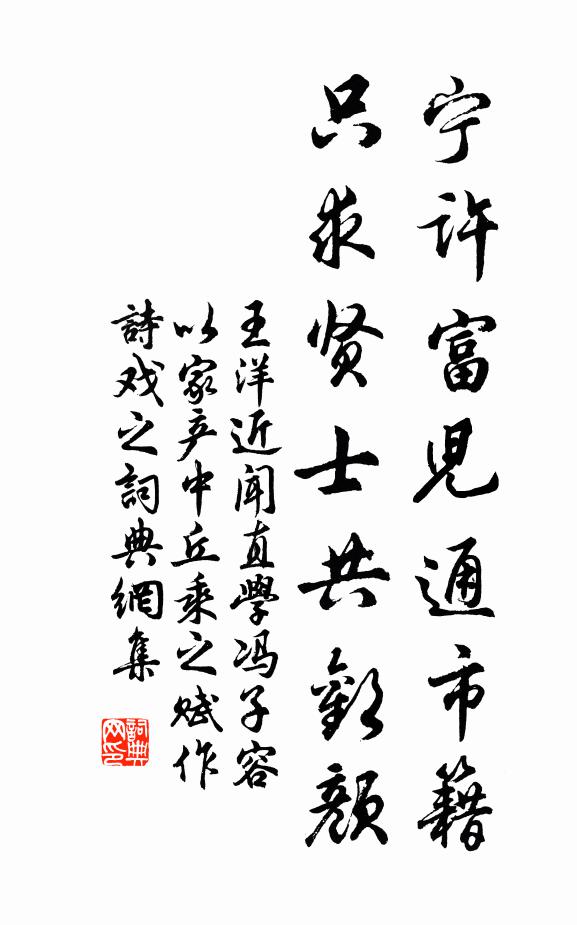 宁许富児通市籍
只求贤士共歡颜
王洋近闻直學冯子容
以家产中丘乘之赋作
詩戏之詞典網集
詞典网印